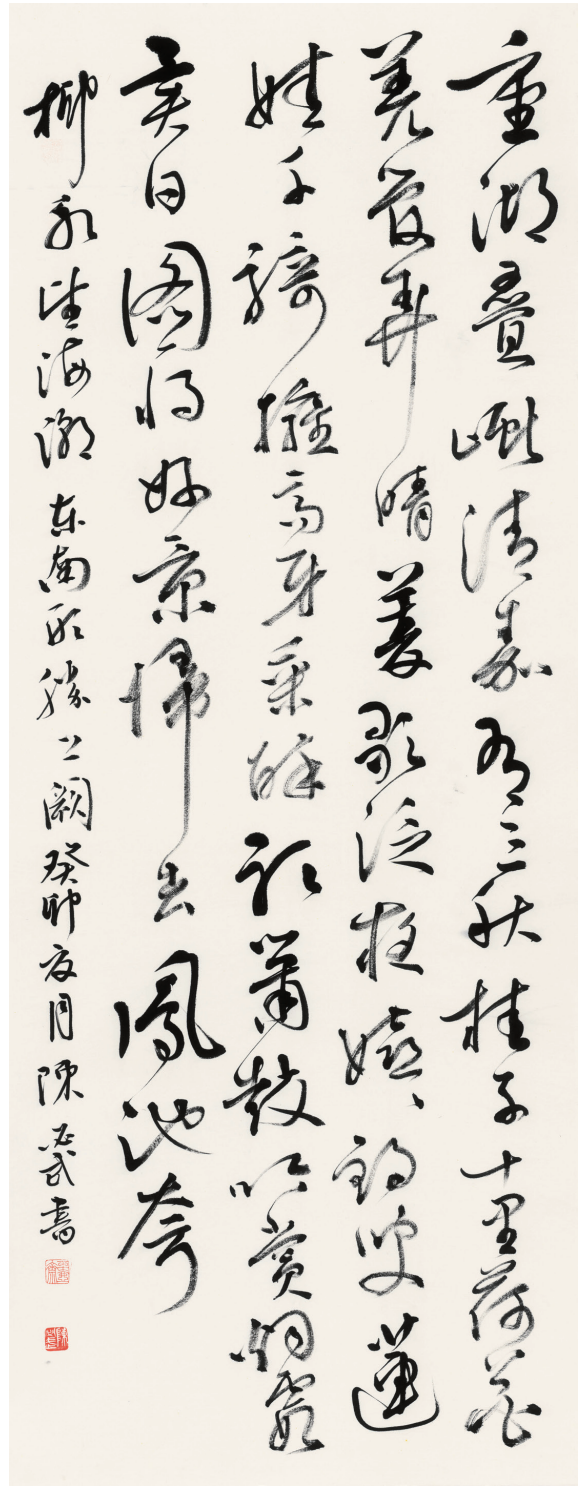 重湖疊巘清嘉有三秋桂子十里荷花
羌管弄晴菱歌泛夜嬉嬉釣叟蓮
娃千騎擁高牙乘醉聽簫鼓吟賞烟霞
異日圖將好景歸去鳳池夸
柳永望海潮東南形勝闕癸卯夏月陳武書